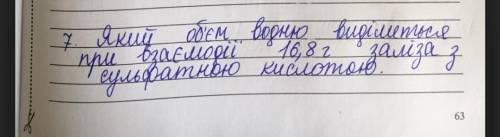 7. Який об'єм водню виділиться
при взаємодії 16,8 г заліза з
сульфатною кислотою.
63